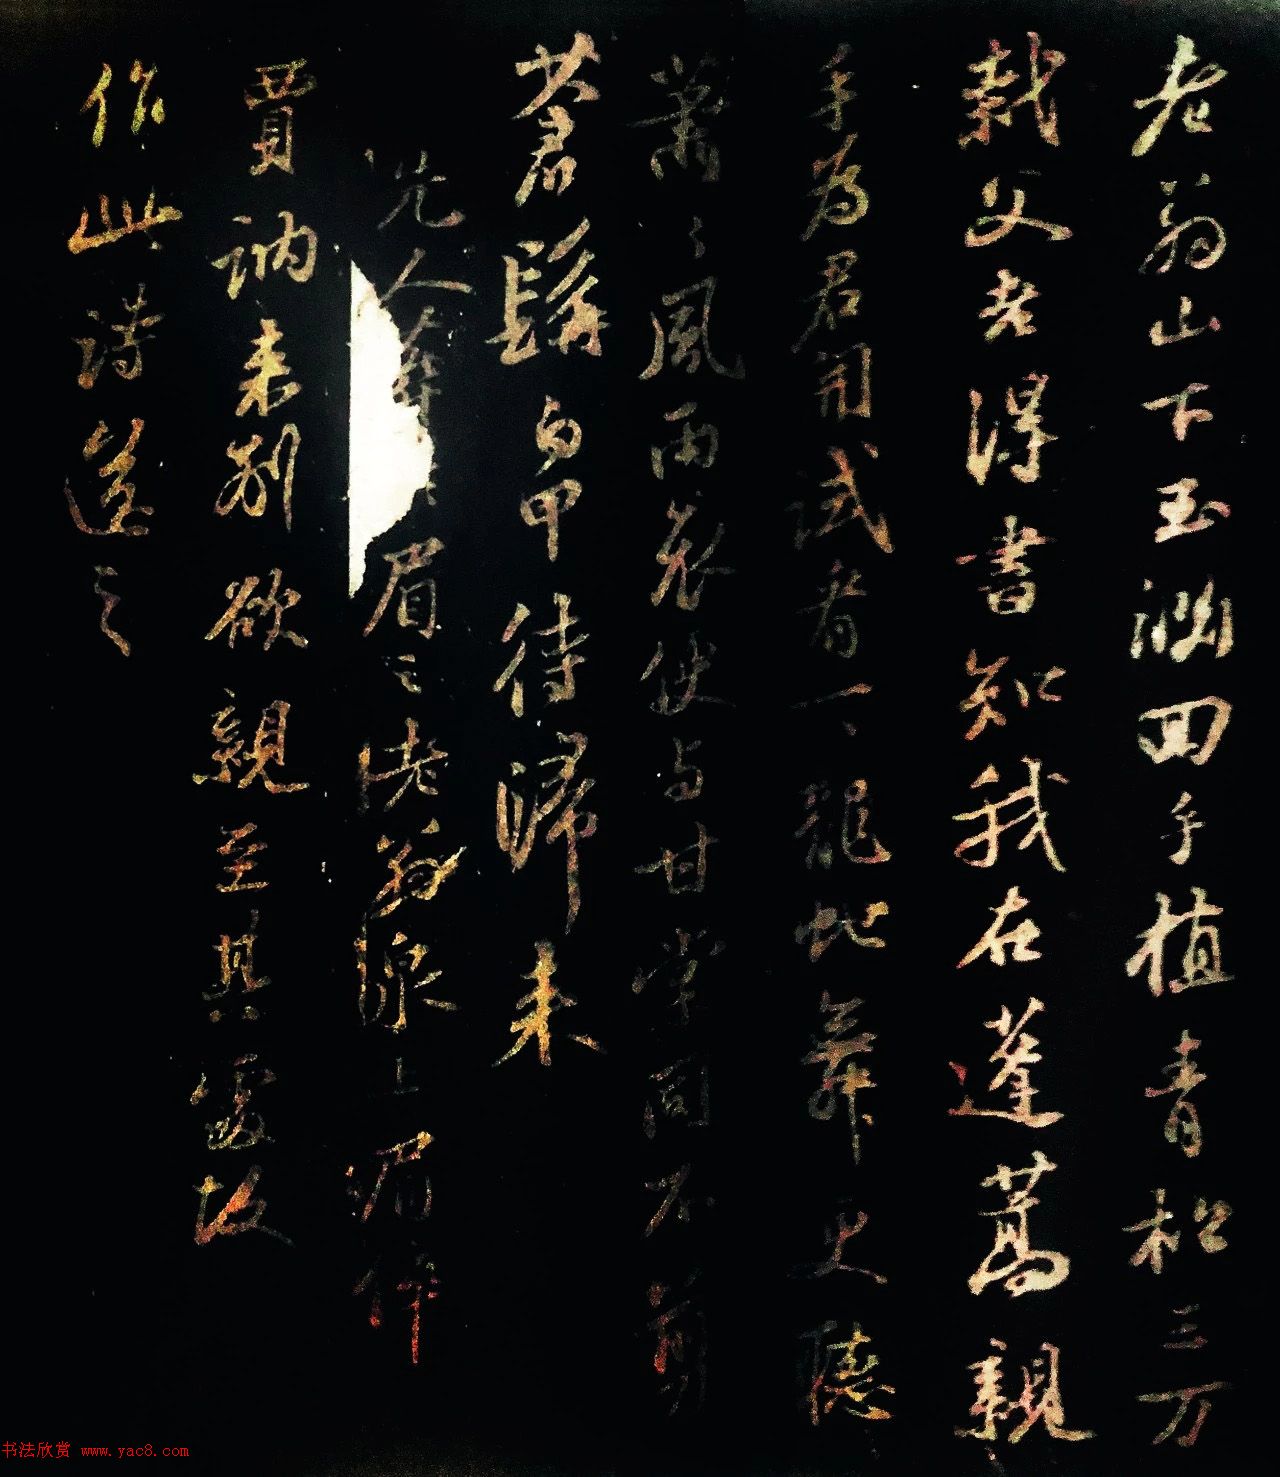 老翁山下玉淵回手植青松三万
栽父老得書知我在蓬蒿親
手為君開試看一、龍蛇舞更聽
蕭々風雨哀便与甘棠同不剪
蒼髯白甲待歸来
先人葬眉之老翁泉上倅
賈訥来別欲親至其處故
作此詩送之
书法欣赏 www.yac8.com